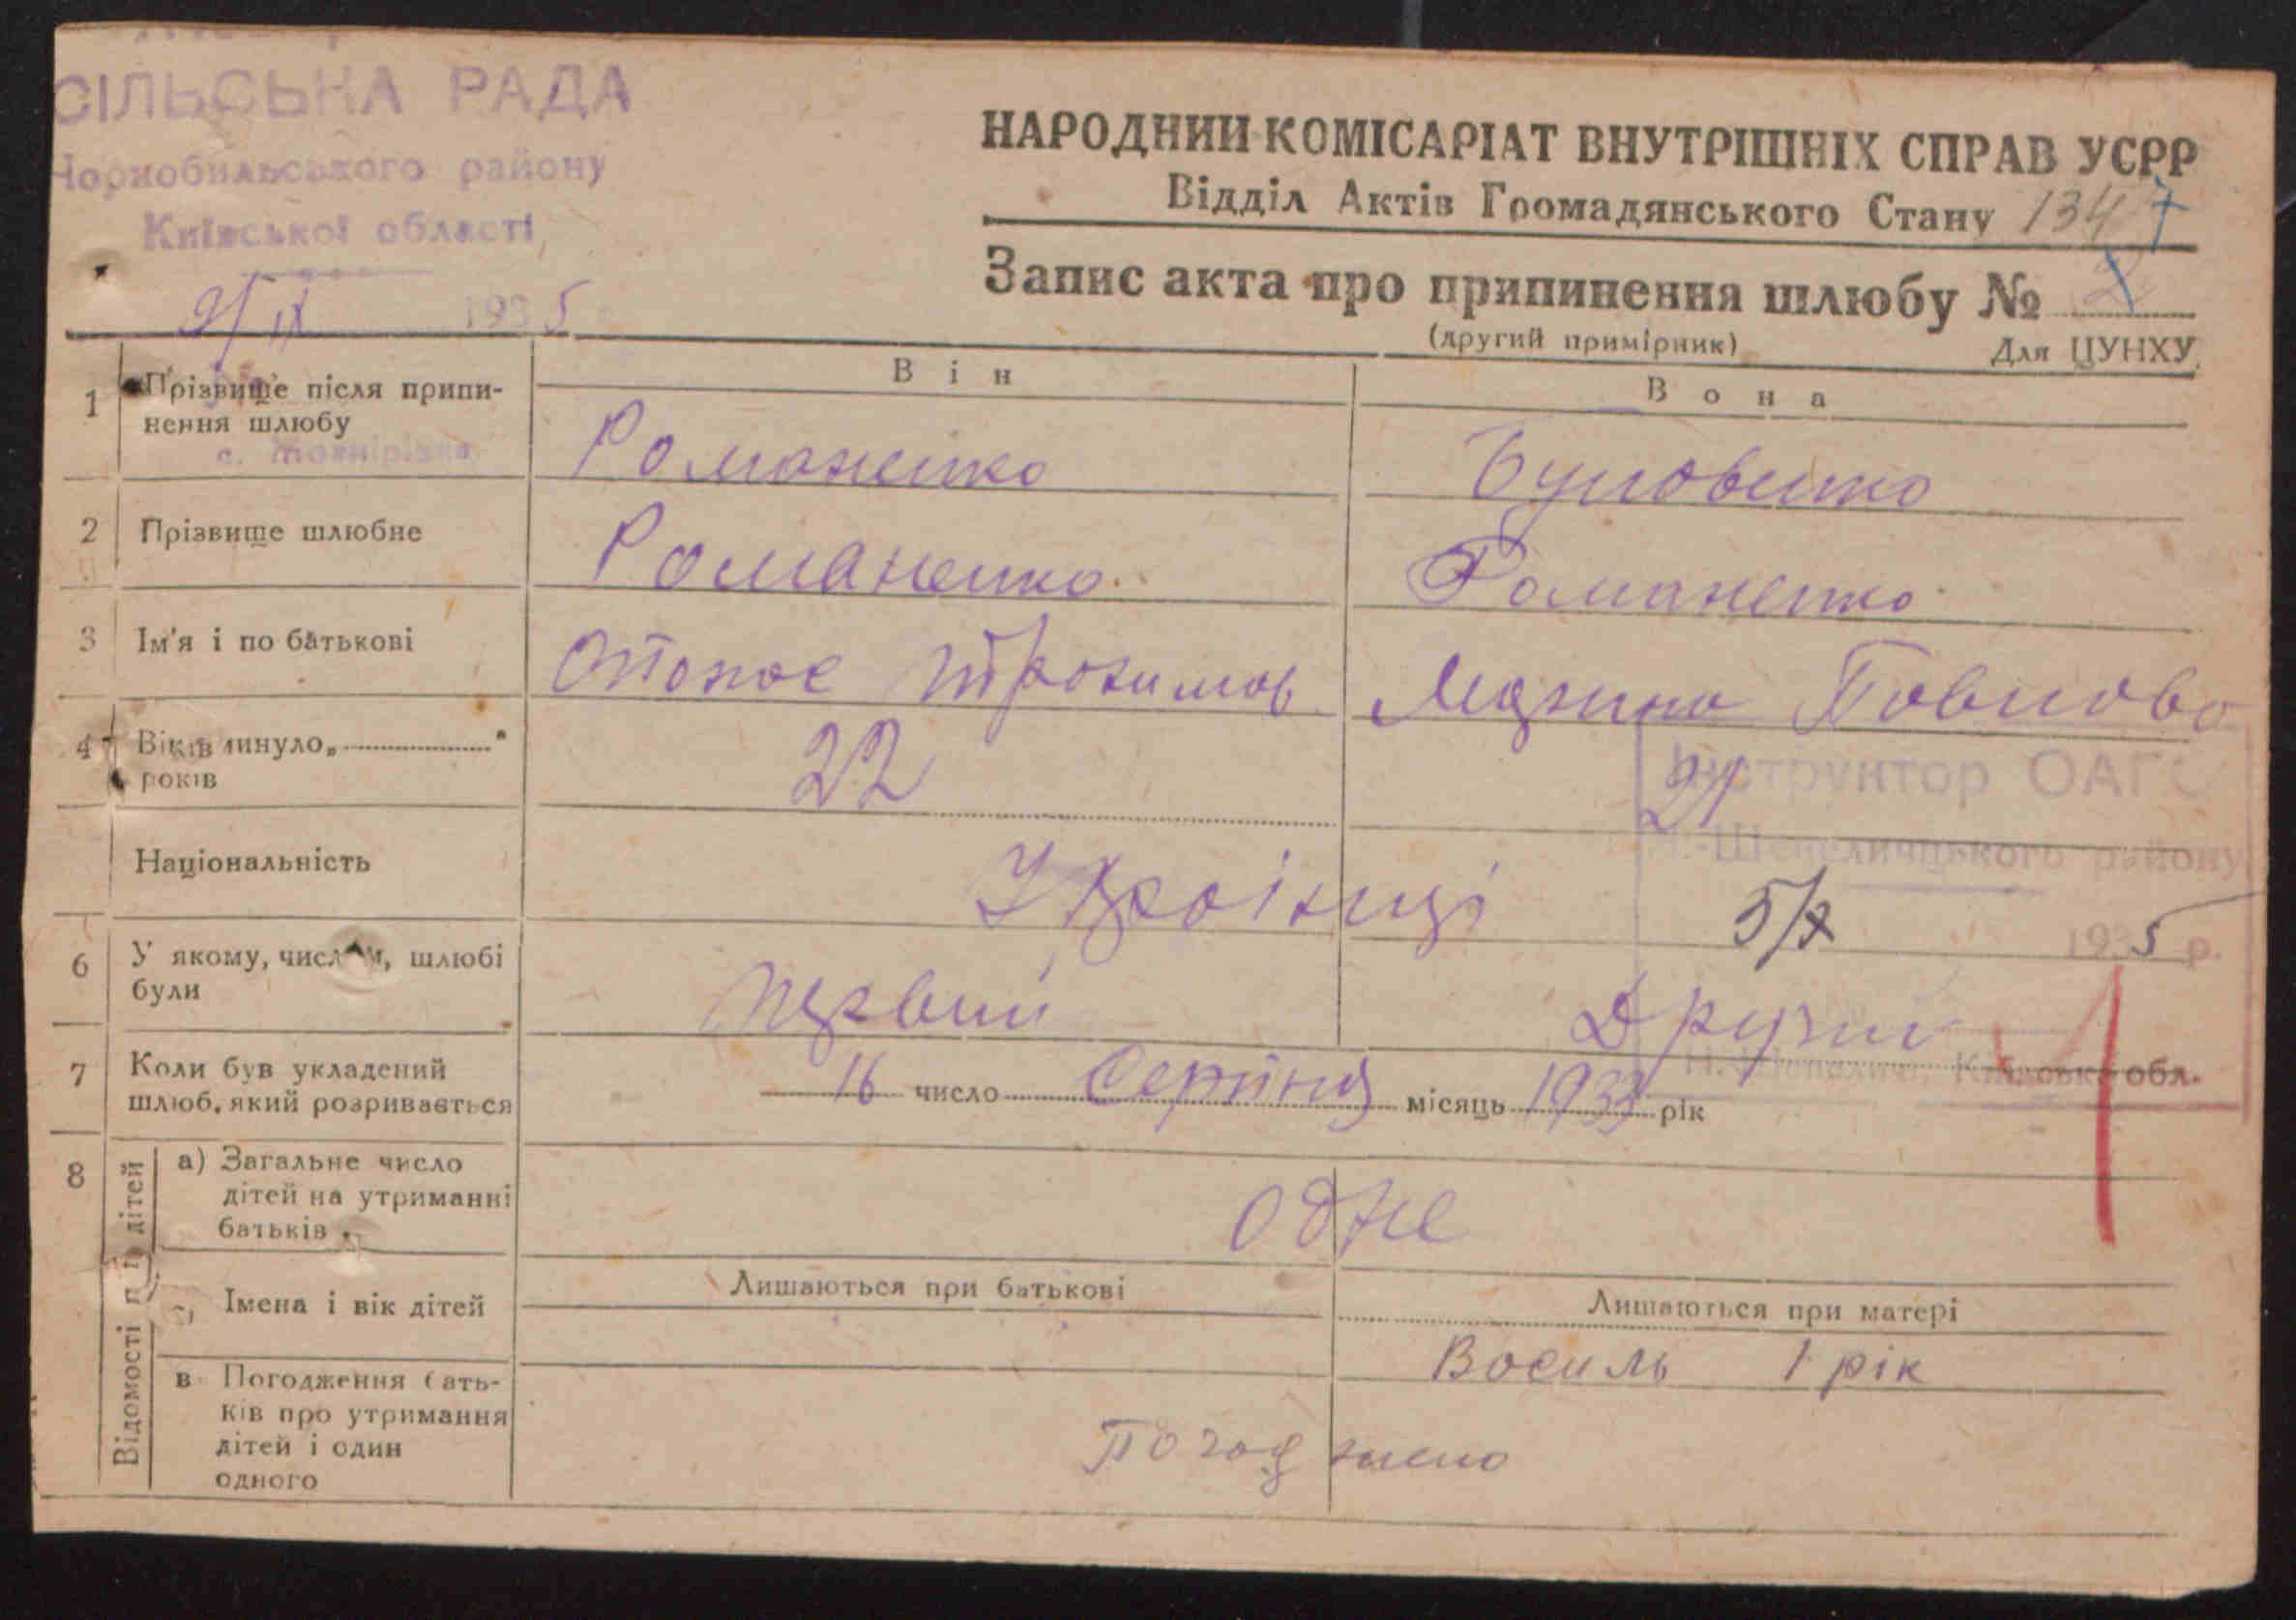 СІЛЬСЬКА РАДА
Чорнобильського району
Київської області
9/IX 1935
НАРОДНИЙ КОМІСАРІАТ ВНУТРІШНІХ СПРАВ УСРР
Відділ Актів Громадянського Стану 134 7
Запис акта про припинення шлюбу № 2
(другий примірник) Для ЦУНХУ.
Він Вона
1 Прізвище після припи-
нення шлюбу
Романенко
2 Прізвище шлюбне Романенко Романенко
3 Ім'я і по батькові Опонос Трохимов Мария Повлова
4 Віків минуло „ “ років 22 21
Інструктор ОАГС
Н.-Шепеличцького району
Національність Українці
5/X 1935 р.
6 У якому, числом, шлюбі
були
Первий Другий
Н. Шепеличі, Київськ. обл.
7 Коли був укладений
шлюб, який розривається
16 число Серпня місяць 1933 рік
8 Відомості про дітей
а) Загальне число
дітей на утриманні
батьків
одне
Імена і вік дітей
Лишаються при батькові Лишаються при матері
Восиль 1 рік
в Погодження бать-
ків про утримання
дітей і один
одного
Погоджено